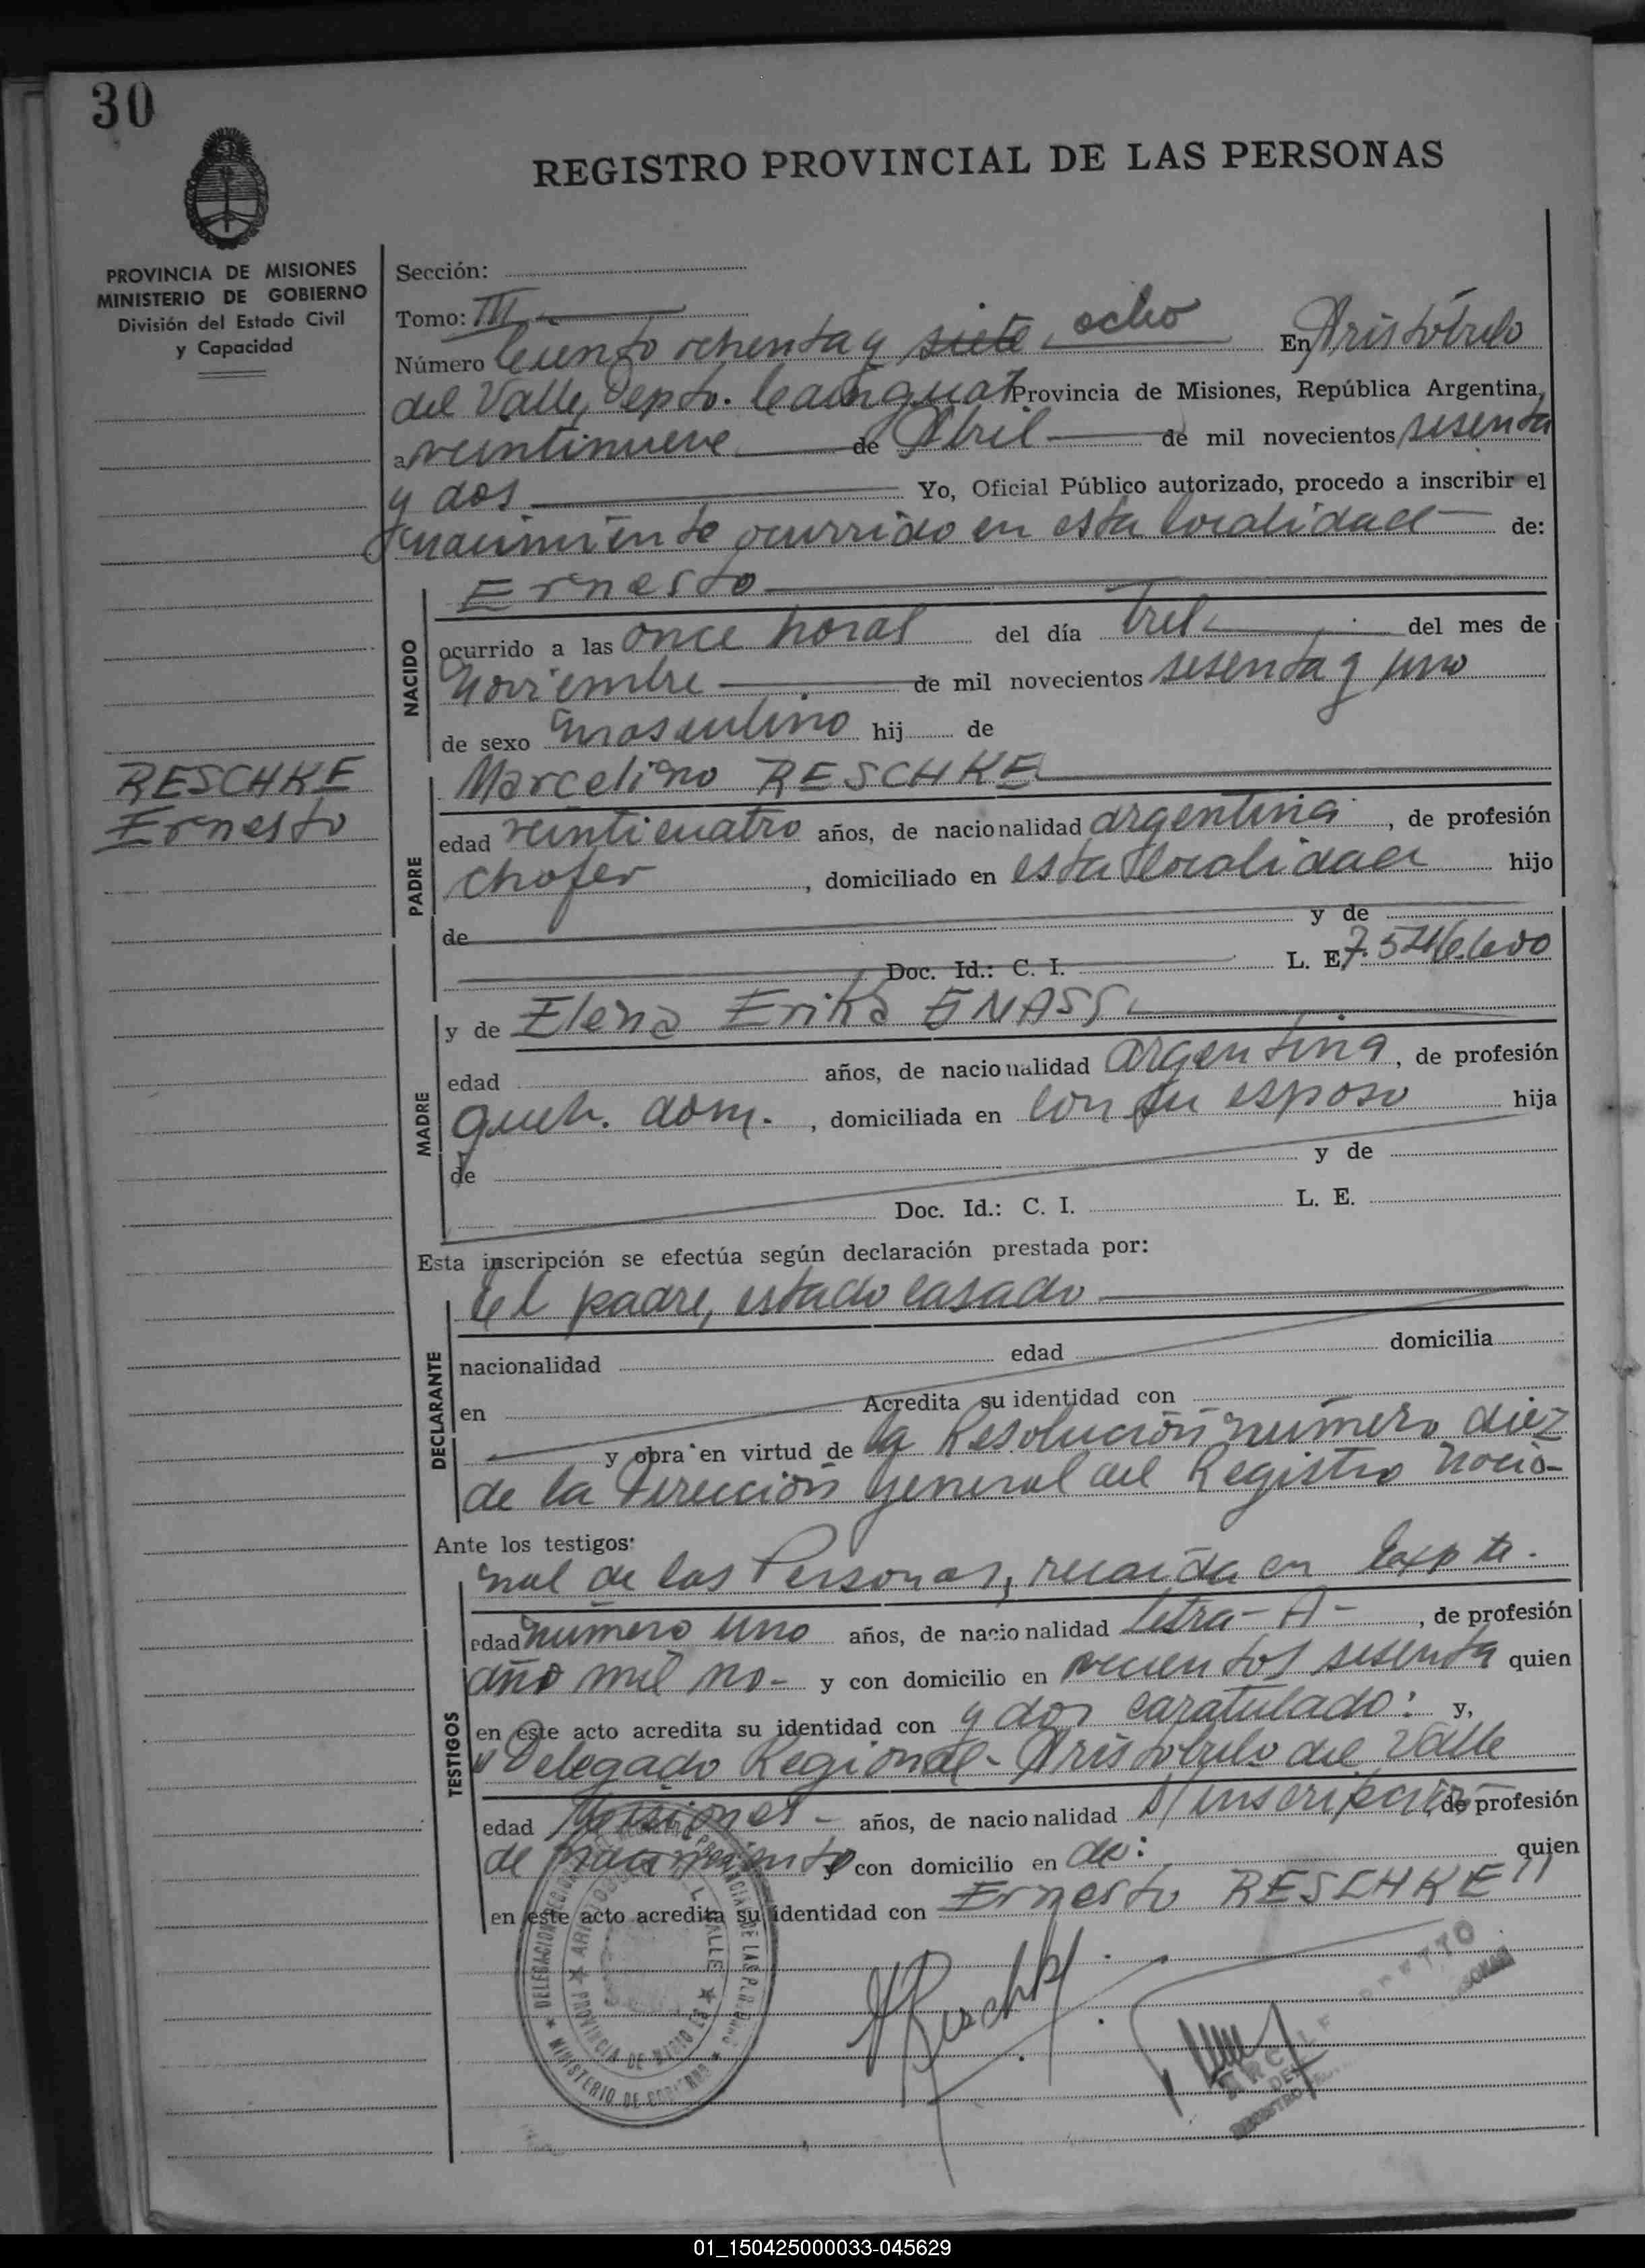 30
REGISTRO PROVINCIAL DE LAS PERSONAS
PROVINCIA DE MISIONES
MINISTERIO DE GOBIERNO
División del Estado Civil
y Capacidad
Sección:
Tomo: III
Número Ciento ochenta y siete ocho En Aristóbulo
del Valle, Depto. Cainguás Provincia de Misiones, República Argentina,
a veintinueve de Abril de mil novecientos sesenta
y dos Yo, Oficial Público autorizado, procedo a inscribir el
nacimiento ocurrido en esta localidad de:
Ernesto
NACIDO
ocurrido a las once horas del día tres del mes de
Noviembre de mil novecientos sesenta y uno
de sexo masculino hij de
RESCHKE
Ernesto
PADRE
Marcelino RESCHKE
edad veinticuatro años, de nacionalidad argentina, de profesión
chofer, domiciliado en esta localidad hijo
de y de
Doc. Id.: C. I. L. E.
MADRE
y de Elena Erika
edad años, de nacionalidad argentina, de profesión
queh. dom., domiciliada en con su esposo hija
de y de
Doc. Id.: C. I. L. E.
Esta inscripción se efectúa según declaración prestada por:
DECLARANTE
el padre, estado casado
nacionalidad edad domicilia
en Acredita su identidad con
y obra en virtud de la Resolución número diez
de la Dirección General del Registro Nacio-
Ante los testigos:
TESTIGOS
nal de las Personas, recaída en Expte.
edad número uno años, de nacionalidad letra-A-, de profesión
año mil no- y con domicilio en vecientos sesenta quien
en este acto acredita su identidad con y dos caratulado: y,
"Delegado Regional- Aristóbulo del Valle
edad Misiones- años, de nacionalidad s/inscripción de profesión
de nacimiento y con domicilio en de: quien
en este acto acredita su identidad con Ernesto RESCHKE"
MINISTERIO DE GOBIERNO
PROVINCIA DE MISIONES
01_150425000033-045629